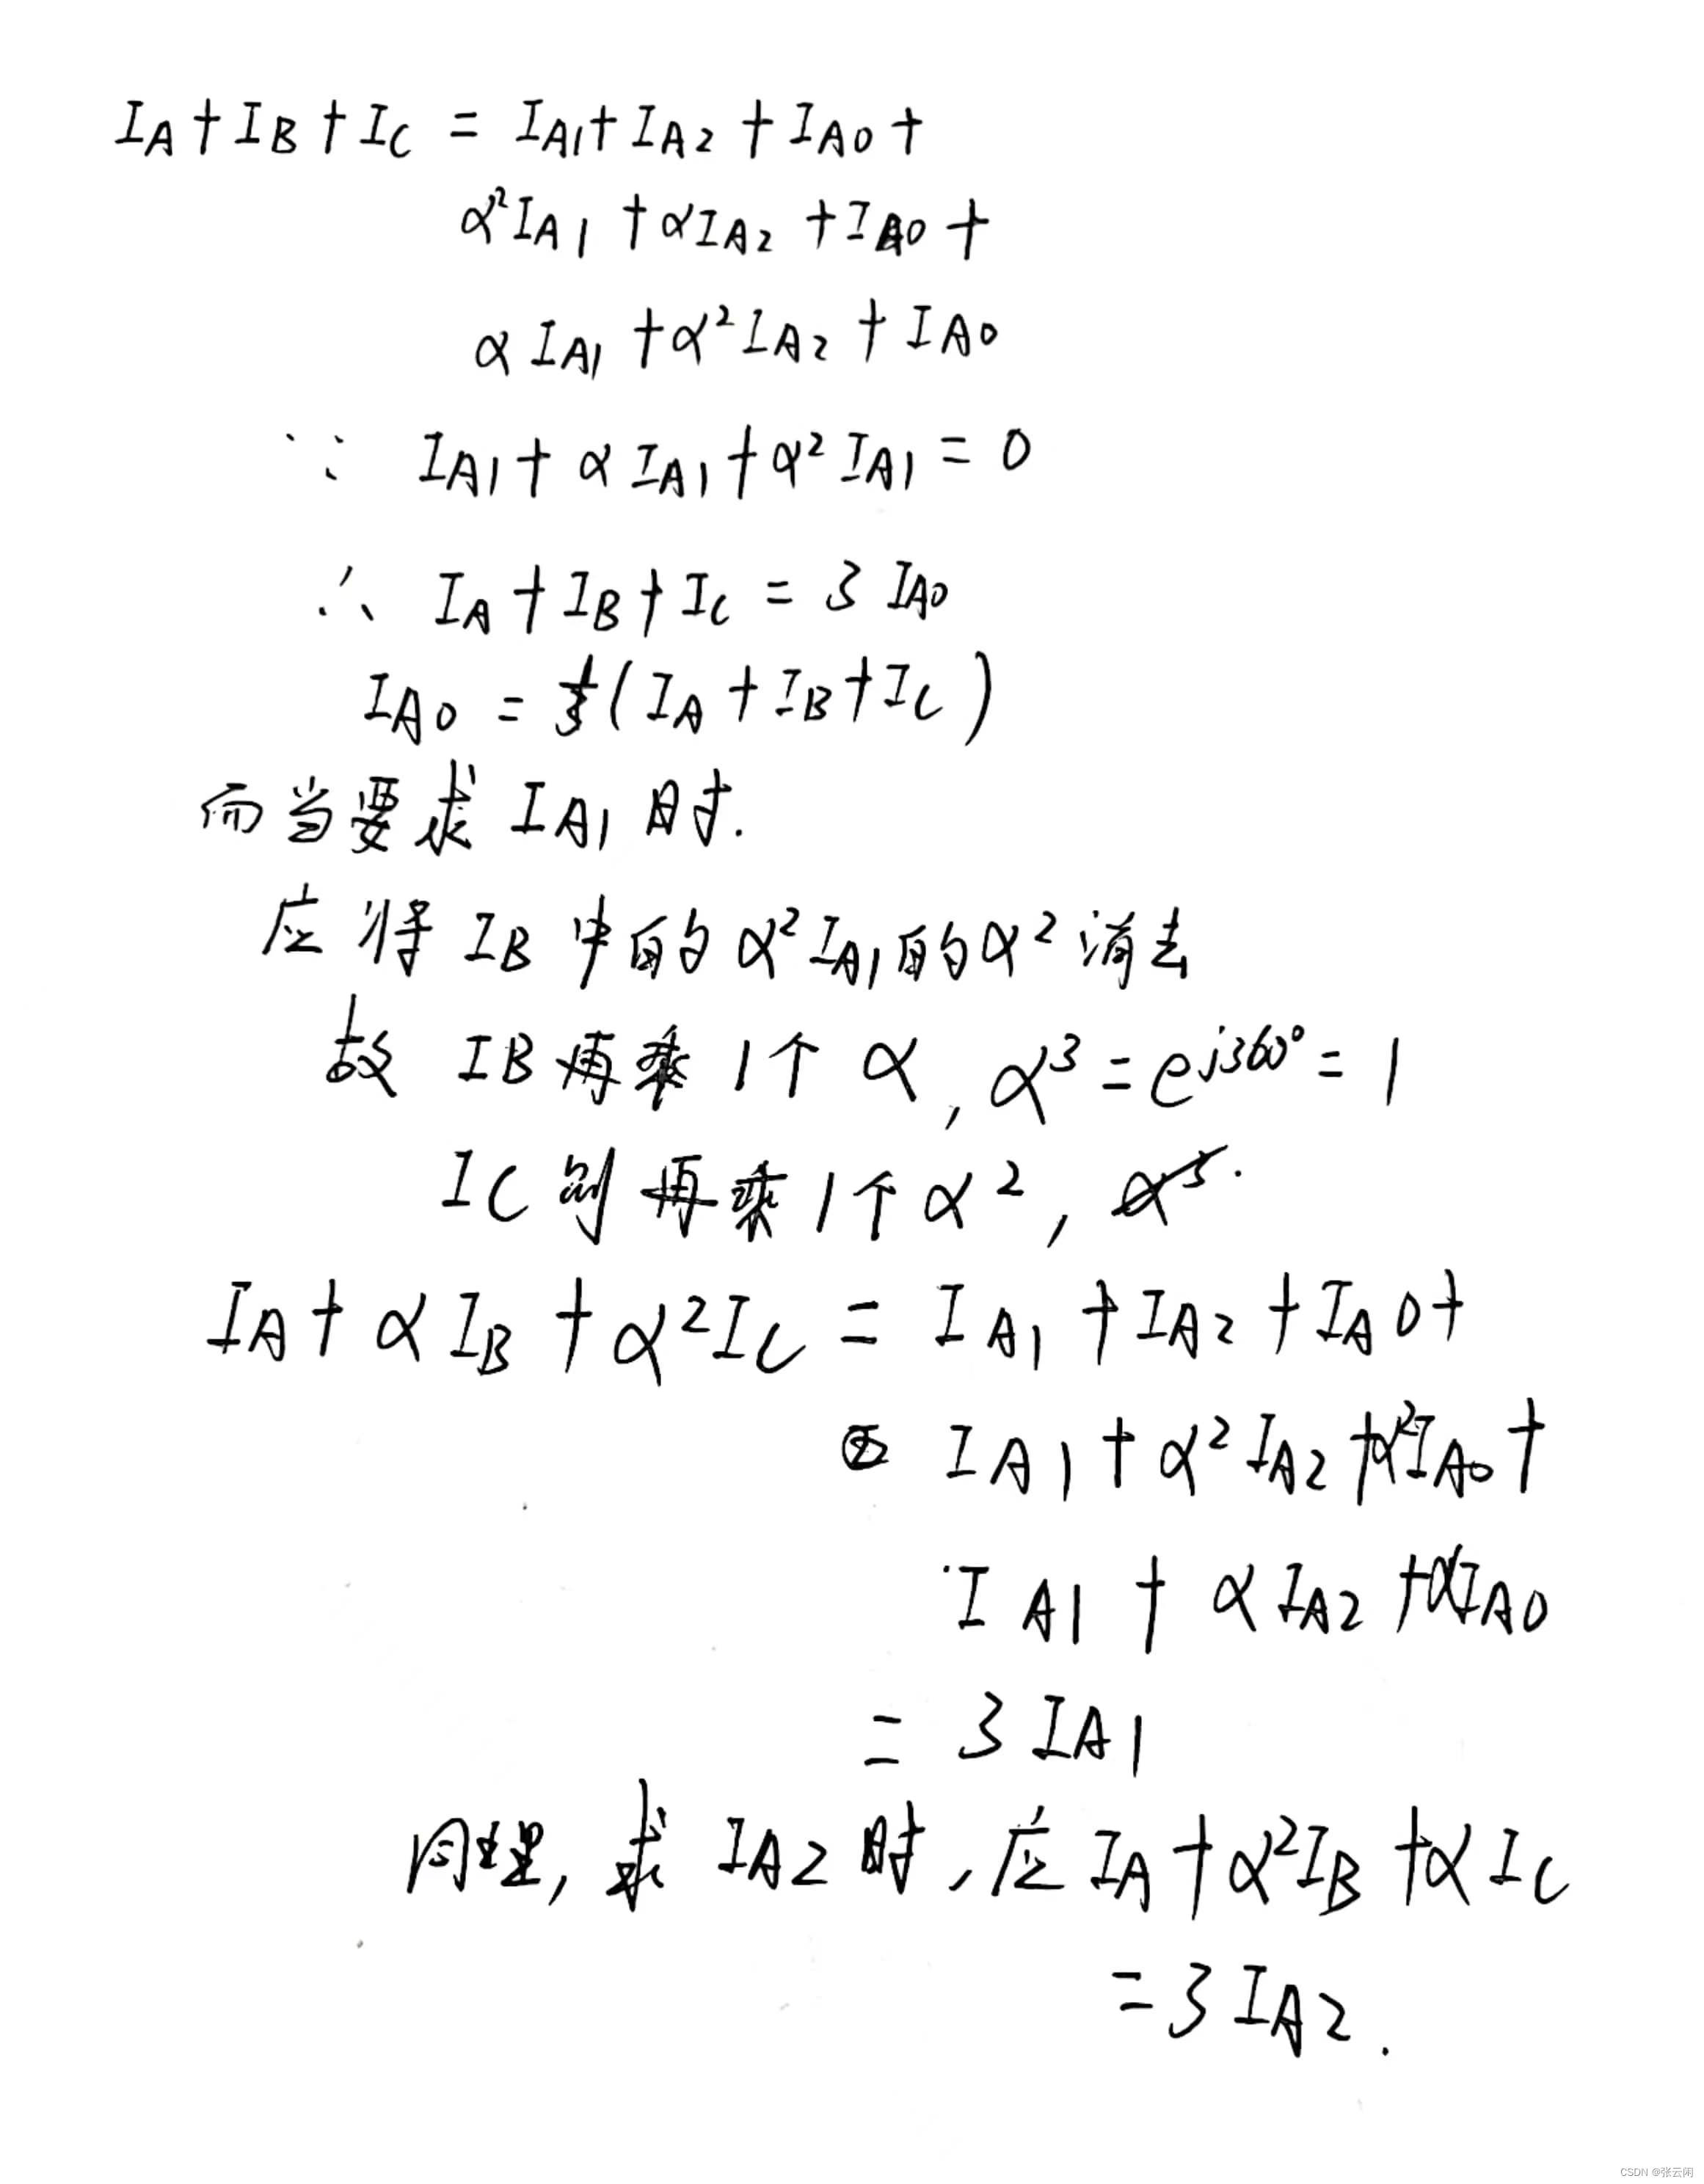 I_A + I_B + I_C = I_A1 + I_A2 + I_A0 +
α²I_A1 + αI_A2 + I_A0 +
αI_A1 + α²I_A2 + I_A0
∵ I_A1 + αI_A1 + α²I_A1 = 0
∴ I_A + I_B + I_C = 3I_A0
I_A0 = 1/3(I_A + I_B + I_C)
而当要求 I_A1 时.
应将 I_B 中的 α²I_A1 的 α² 消去
故 I_B 再乘 1个 α, α³ = e^j360° = 1
I_C 则再乘 1个 α²,
I_A + αI_B + α²I_C = I_A1 + I_A2 + I_A0 +
I_A1 + α²I_A2 + α²I_A0 +
I_A1 + αI_A2 + αI_A0
= 3I_A1
同理, 求 I_A2 时, 应 I_A + α²I_B + αI_C
= 3I_A2.
CSDN @张云闲